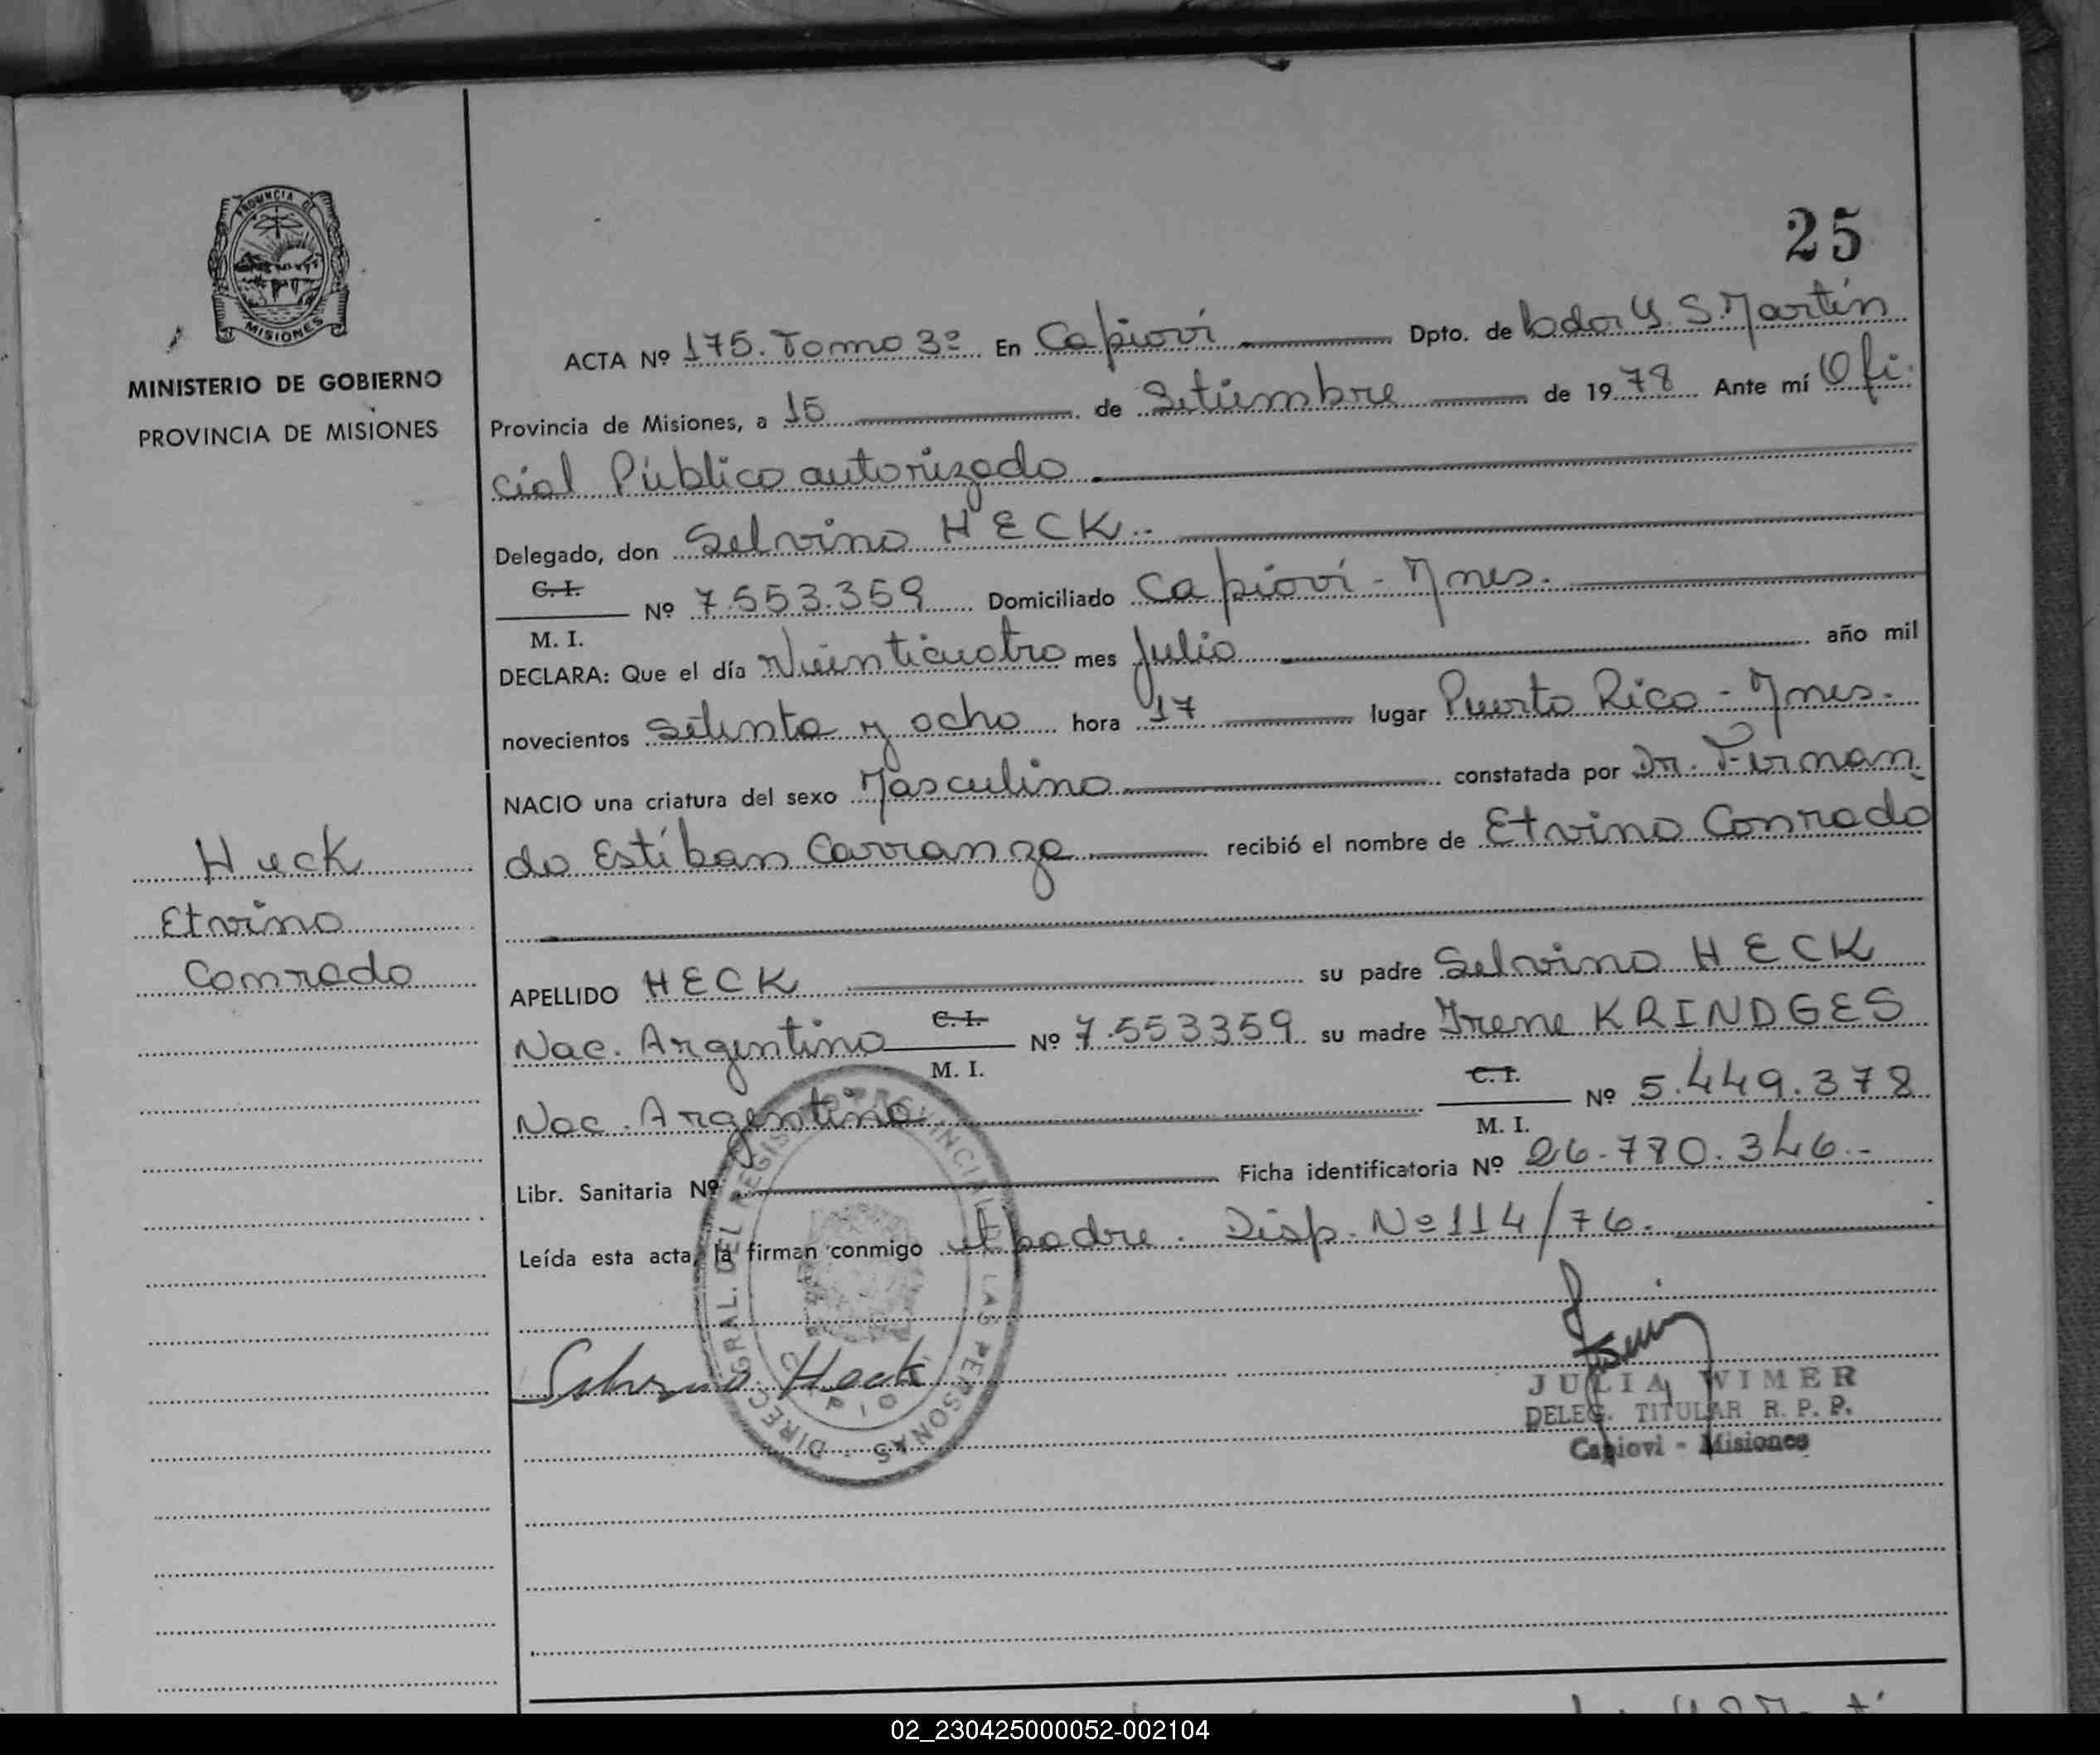 25
PROVINCIA DE
MISIONES
MINISTERIO DE GOBIERNO
PROVINCIA DE MISIONES
Heck
Etvino
Conrado
ACTA Nº 175. Tomo 3º En Capioví Dpto. de Ldor G. S. Martín
Provincia de Misiones, a 15 de Setiembre de 1978 Ante mí Ofi-
cial Público autorizado
Delegado, don Selvino HECK.-
C. I.
M. I. Nº 7.553.359 Domiciliado Capioví - Mnes.
DECLARA: Que el día Veinticuatro mes Julio año mil
novecientos Setenta y ocho hora 17 lugar Puerto Rico - Mnes.
NACIO una criatura del sexo Masculino constatada por Dr. Fernan-
do Estéban Carranza recibió el nombre de Etvino Conrado
APELLIDO HECK su padre Selvino HECK
Nac. Argentino C. I. M. I. Nº 7.553359 su madre Irene KRINDGES
Nac. Argentina C. I. M. I. Nº 5.449.378
Libr. Sanitaria Nº Ficha identificatoria Nº 26.780.346.-
Leída esta acta, la firman conmigo el padre. Disp. Nº 114/76.
Selvino Heck
DIREC. GRAL. DEL REGIST PROVINCIAL DE LAS PERSONAS
JULIA WIMER
DELEG. TITULAR R. P. P.
Capiovi - Misiones
02_230425000052-002104